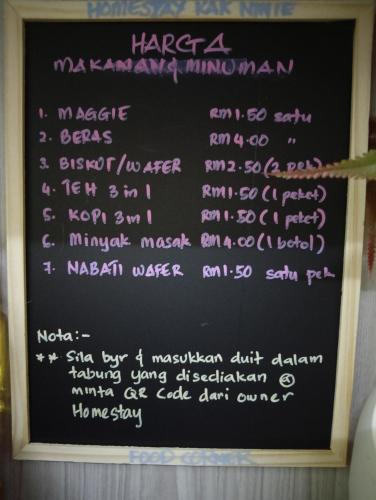 HOMESTAY KAK NINIE
HARGA
MAKANAN & MINUMAN
1. MAGGIE RM1.50 satu
2. BERAS RM4.00 "
3. BISKUT/WAFER RM2.50 (2 pek)
4. TEH 3 in 1 RM1.50 (1 peket)
5. KOPI 3 in 1 RM1.50 (1 peket)
6. Minyak masak RM4.00 (1 botol)
7. NABATI WAFER RM1.50 satu pek
Nota:-
** Sila byr & masukkan duit dalam
tabung yang disediakan @
minta QR Code dari owner
Homestay
FOOD CORNER